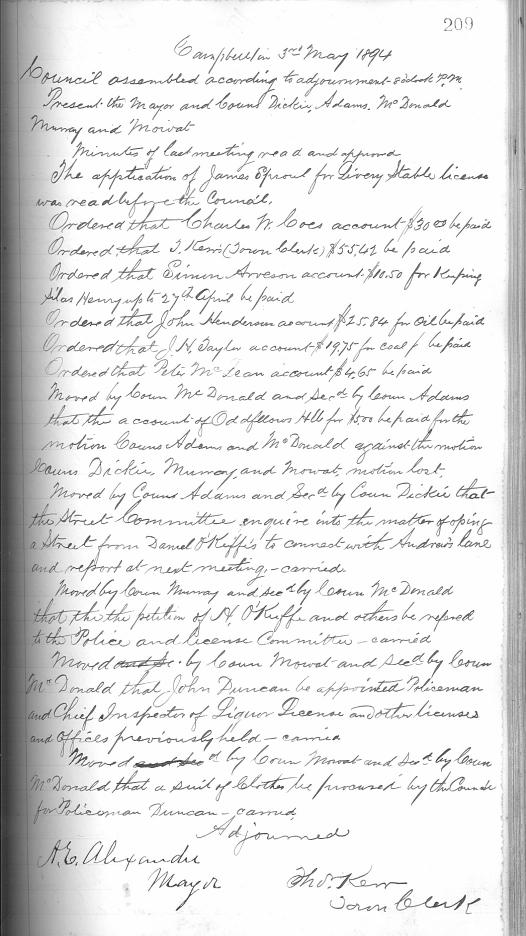 209
Campbellton 3rd May 1894
Council assembled according to adjournment 8 oclock P.M.
Present the Mayor and Couns Dickie, Adams, McDonald
Murray and Mowat
Minutes of last meeting read and approved
The application of James Sproul for Livery Stable license
was read before the Council.
Ordered that Charles W Coes account $30.00 be paid
Ordered that T. Kerr (Town Clerk) $55.42 be paid
Ordered that Simon Arveson account $10.50 for Keeping
Silas Henry up to 27th April be paid
Ordered that John Henderson account $25.84 for Oil be paid
Ordered that J. H. Taylor account $19.75 for coal be paid
Ordered that Peter McLean account $4.65 be paid
Moved by Coun McDonald and Secd by Coun Adams
that the account of Oddfellows Hall for $5.00 be paid for the
motion Couns Adams and McDonald against the motion
Couns Dickie, Murray, and Mowat, motion lost.
Moved by Couns Adams and Secd by Coun Dickie that
the Street Committee enquire into the matter of oping
a Street from Daniel O'Kiffe's to connect with Andrew's lane
and report at next meeting. - carried
Moved by Coun Murray and Secd by Coun McDonald
that the the petition of H. O'Kuffe and others be refered
to the Police and license Committee - carried
Moved by Coun Mowat and Secd by Coun
McDonald that John Duncan be appointed Policeman
and Chief Inspector of Liquor License and other licenses
and offices previously held - carried
Moved by Coun Mowat and Secd by Coun
McDonald that a suit of Clothes be procured by the Council
for Policeman Duncan - carried.
Adjourned
A. E. Alexander
Mayor
Thos. Kerr
Town Clerk